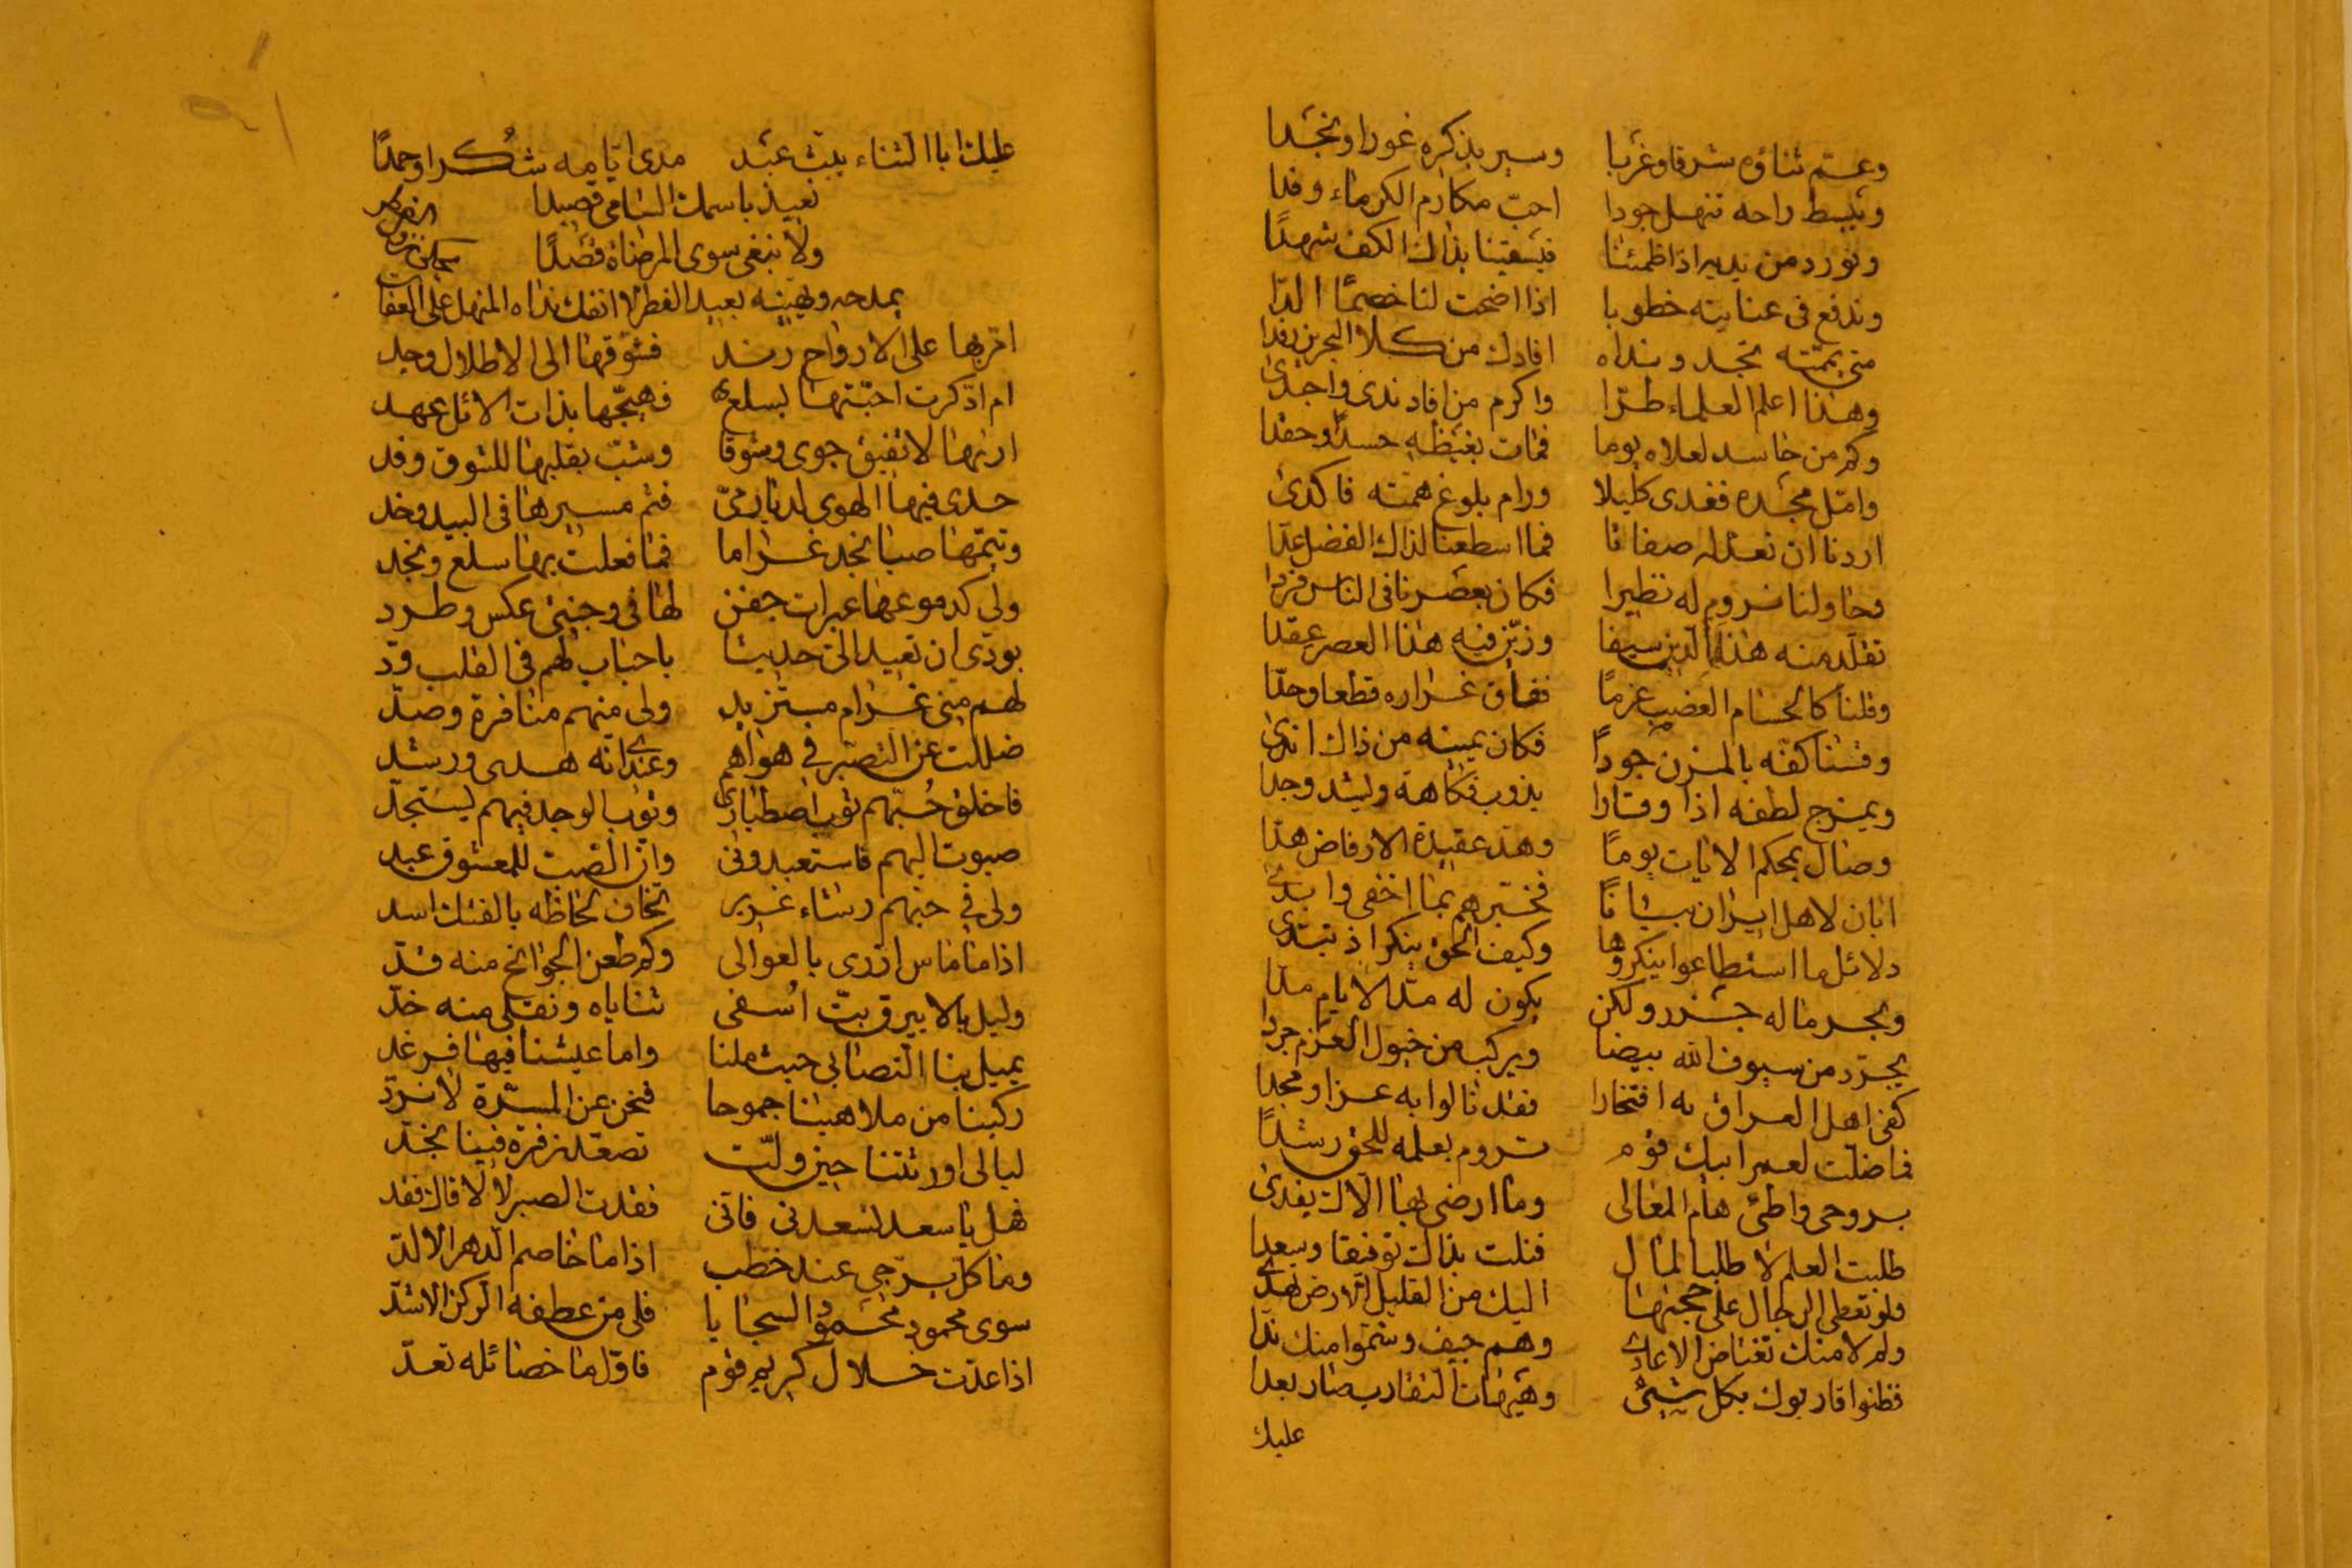 وعمّ ثناؤه شرقا وغربا وسير بذكره غورا ونجدا
وتبسط راحه تنهل جودا احبّ مكارم الكرماء وفدا
ونورد من يديه اذا ظمئنا فيسقينا بذاك الكف شهدًا
وندفع في عنايته خطوبا اذا اضحت لنا خصمًا الدّا
متى يممته تجد ونداه افادك من كلا البحرين رفدا
وهذا اعلم العلماء طرّا واكرم من افاد ندى واجدى
وكم من حاسد لعلاه يوما فمات بغيظه حسدًا وحقدا
وامّل مجده فغدى كليلا ورام بلوغ همته فاكدى
اردنا ان نعد له صفاتا فما اسطعنا لذاك الفضل عدّا
وحاولنا نروم له نظيرا فكان بعصرنا في الناس فردا
تقلّد منه هذا الدين سيفا وزيّن فيه هذا العصر عقدا
وقلنا كالحسام العضب عزمًا ففاق غراره قطعا وحدّا
وقسنا كفّه بالمزن جودًا فكان يمينه من ذاك اندى
ويمزج لطفه اذا وقارا يذوب فكاهة ويشد وجدا
وصال بمحكم الايات يومًا وهد عقيدة الارفاض هدّا
ابان لاهل ايران بيانًا فخبّرهم بما اخفى وابدى
دلائل ما استطاعوا ينكروها وكيف الحق ينكر اذ تبدى
وبحر ما له جزر ولكن يكون له مدا الايام مدّا
يجرّد من سيوف الله بيضا ويركب من خيول العزم جردا
كفى اهل العراق به افتخارا فقد نالوا به عزا ومجدا
فما ضلّت لعمر ابيك قوم تروم بعلمه للحق رشدًا
بروحي واطئ هام المعالي وما ارضى لها الّاك يفدى
طلبت العلم لا طلبا لمال فنلت بذاك توفيقا وسعدا
ولو تعطى الرجال على حجتها اليك من القليل الارض تهدى
ولم لا منك تغتاض الاعادي وهم جيف وشمّوا منك ندّا
فظنوا قاربوك بكل شيئ وهيهات التقارب صار بعدا
عليك
عليك ابا الثناء يبث عبد مدى ايامه شُكرا وحمدًا
نعيذ باسمك السامي قصيدا
ولا نبغي سوى المرضاة قصدًا
يمدحه ويهنيه بعيد الفطر لا انفك نداه المنهل على العفات
اضرّ بها على الارواح رند فشوّقها الى الاطلال وجد
ام اذكرت احبّتها بسلع فهيّجها بذات الاثل عهد
ارنها لا تفيق جوى وشوقا وشبّ بقلبها للشوق وقد
حدى فيها الهوى لديار ميّ فثم مسيرها في البيد وخد
وتيّمها صبا نجد غراما فما فعلت بها سلع ونجد
ولي كدموعها عبرات جفن لها في وجنتي عكس وطرد
بودّي ان تعيد اليّ حديثا باحباب لهم في القلب ودّ
لهم مني غرام مستزيد ولي منهم منافرة وصدّ
ضللت عن التصبّر في هواهم وعندي انه هدى ورشد
فاخلق حُبّهم ثوب اصطباري وثوب الوجد فيهم يستجدّ
صبوت اليهم فاستعبدوني وانّ الصب للمعشوق عبد
ولي في حبهم رشاء غرير تخاف لحاظه بالفتك اسد
اذا ما ماس ازرى بالعوالي وكم طعن الجوانح منه قدّ
وليل بالابيرق بتّ اُسقى ثناياه ونقلي منه خدّ
يميل بنا التصابي حيث ملنا واما عيشنا فيها فرغد
ركبنا من ملاهينا جموحا فنحن عن المسرّة لا نردّ
ليالي اورثتنا حين ولّت تصعّد زفرة فينا تجدّ
فهل يا سعد تسعدني فاني فقدت الصبر لا لاقاك فقد
وما كل يرجي عند خطب اذا ما خاصم الدهر الالدّ
سوى محمود محمود السجايا فلي من عطفه الركن الاشدّ
اذا عدّت خلال كريم قوم فاوّل ما خصائله تعدّ